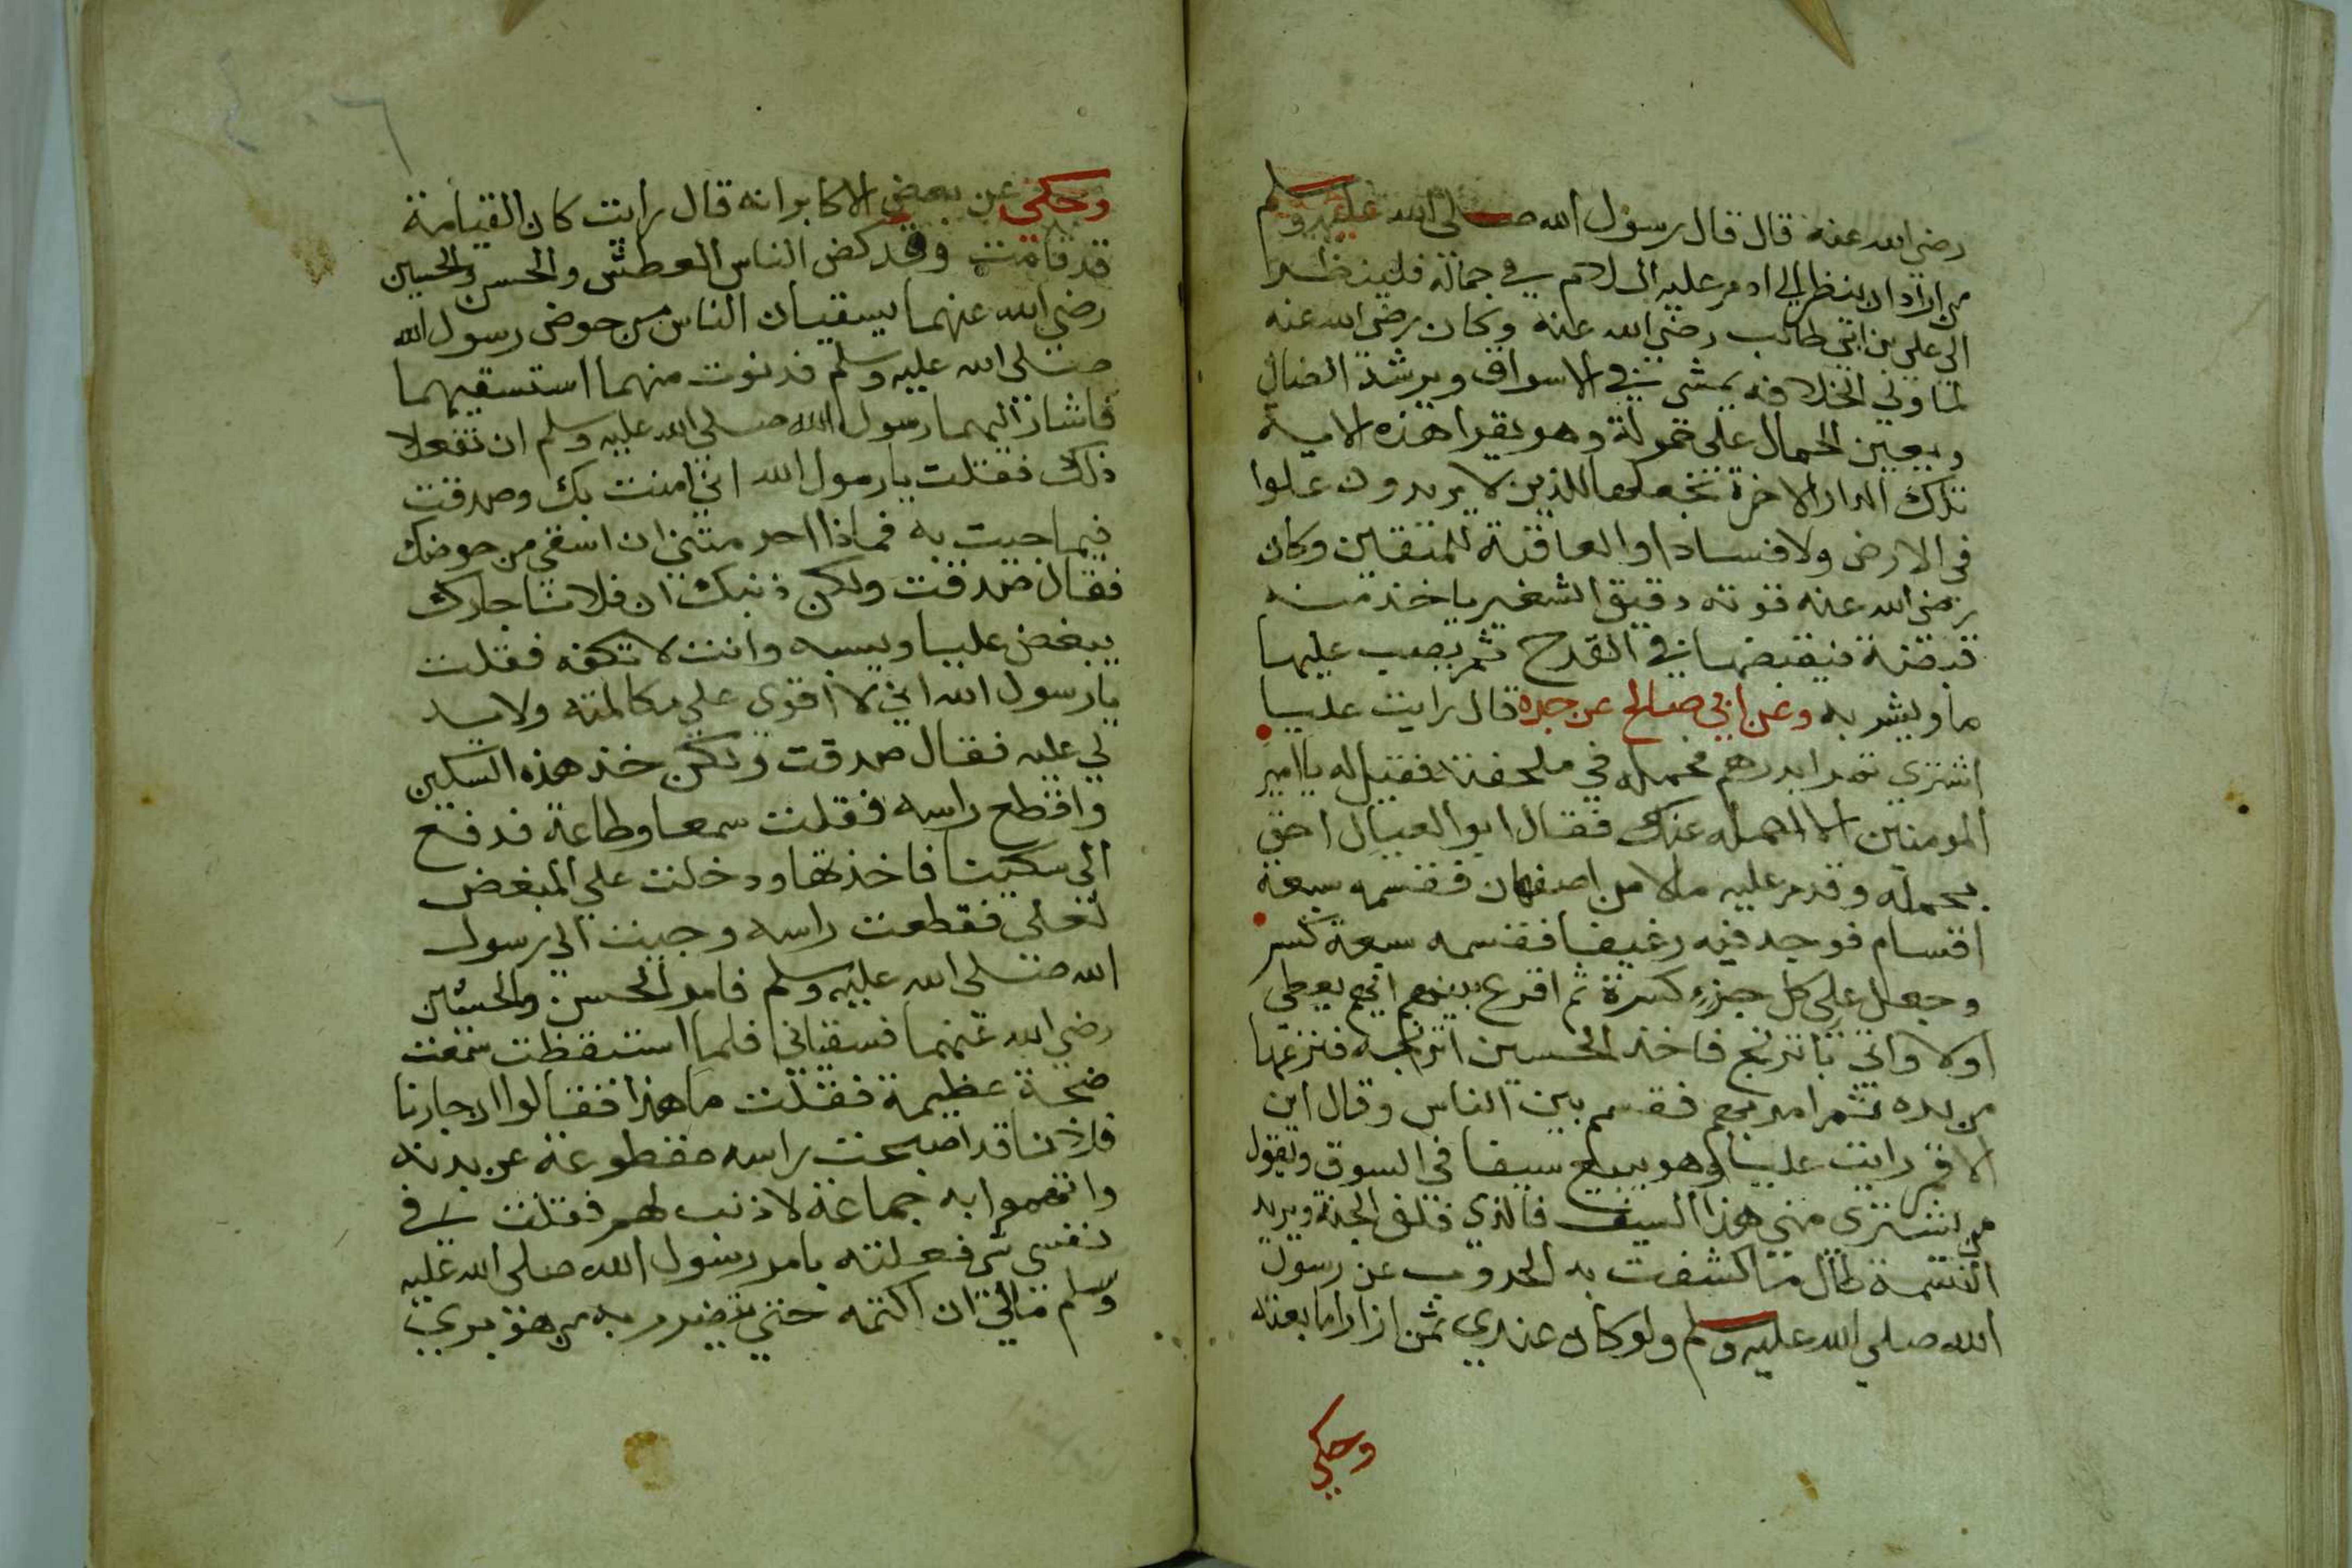 رضي الله عنه قال قال رسول الله صلى الله عليه وسلم
من اراد ان ينظر الى ادم عليه السلام في جماله فلينظر
الى علي بن ابي طالب رضي الله عنه وكان رضي الله عنه
لما ولي الخلافه يمشي في الاسواق ويرشد الضال
ويعين الحمال على حموله وهو يقرا هذه الاية
تلك الدار الاخرة نجعلها للذين لا يريدون علوا
في الارض ولا فسادا والعاقبة للمتقين وكان
رضي الله عنه قوته دقيق الشعير ياخذ منه
قبضة فيقبضها في القدح ثم يصب عليها
ما ويشربه وعن ابي صالح عن جده قال رايت عليا
اشترى تمرا بدرهم فحمله في ملحفته فقيل له يا امير
المومنين الا نحمله عنك فقال ابو العيال احق
بحمله وقدم عليه مال من اصفهان فقسمه سبعة
اقسام فوجد فيه رغيفا فقسمه سبعة كسر
وجعل على كل جزء كسرة ثم اقرع بينهم ايهم يعطى
اولا واتي باترنج فاخذ الحسين اترنجة فنزعها
من يده ثم امر بهم فقسم بين الناس وقال ابن
الارقم رايت عليا وهو يبيع سيفا في السوق ويقول
من يشتري مني هذا السيف فالذي فلق الجنة ويريد
النسمة طال ما كشفت به الحروب عن رسول
الله صلى الله عليه وسلم ولو كان عندي ثمن ازار ما بعته
وحكي
وحكي عن بعض الاكابر انه قال رايت كان القيامة
قد قامت وقد كض الناس العطش والحسن والحسين
رضي الله عنهما يسقيان الناس من حوض رسول الله
صلى الله عليه وسلم فدنوت منهما استسقيهما
فاشار اليهما رسول الله صلى الله عليه وسلم ان تفعلا
ذلك فقلت يا رسول الله اني امنت بك وصدقت
فيما جيت به فماذا احرمتني ان اسقى من حوضك
فقال صدقت ولكن ذنبك ان فلانا جارك
يبغض عليا ويسبه وانت لا تكفه فقلت
يا رسول الله اني لا اقوى على مكالمته ولا يد
لي عليه فقال صدقت ولكن خذ هذه السكين
واقطع راسه فقلت سمعا وطاعة فدفع
الى سكينا فاخذتها ودخلت على المبغض
لعلي فقطعت راسه وجيت الى رسول
الله صلى الله عليه وسلم فامر الحسن والحسين
رضي الله عنهما فسقياني فلما استيقظت سمعت
ضجة عظيمة فقلت ما هذا فقالوا ان جارنا
فلانا قد اصبحت راسه مقطوعة عن بدنه
واتهموا به جماعة لا ذنب لهم فقلت في
نفسي شي فعلته بامر رسول الله صلى الله عليه
وسلم مالي ان اكتمه حتى يضرر به من هو بري